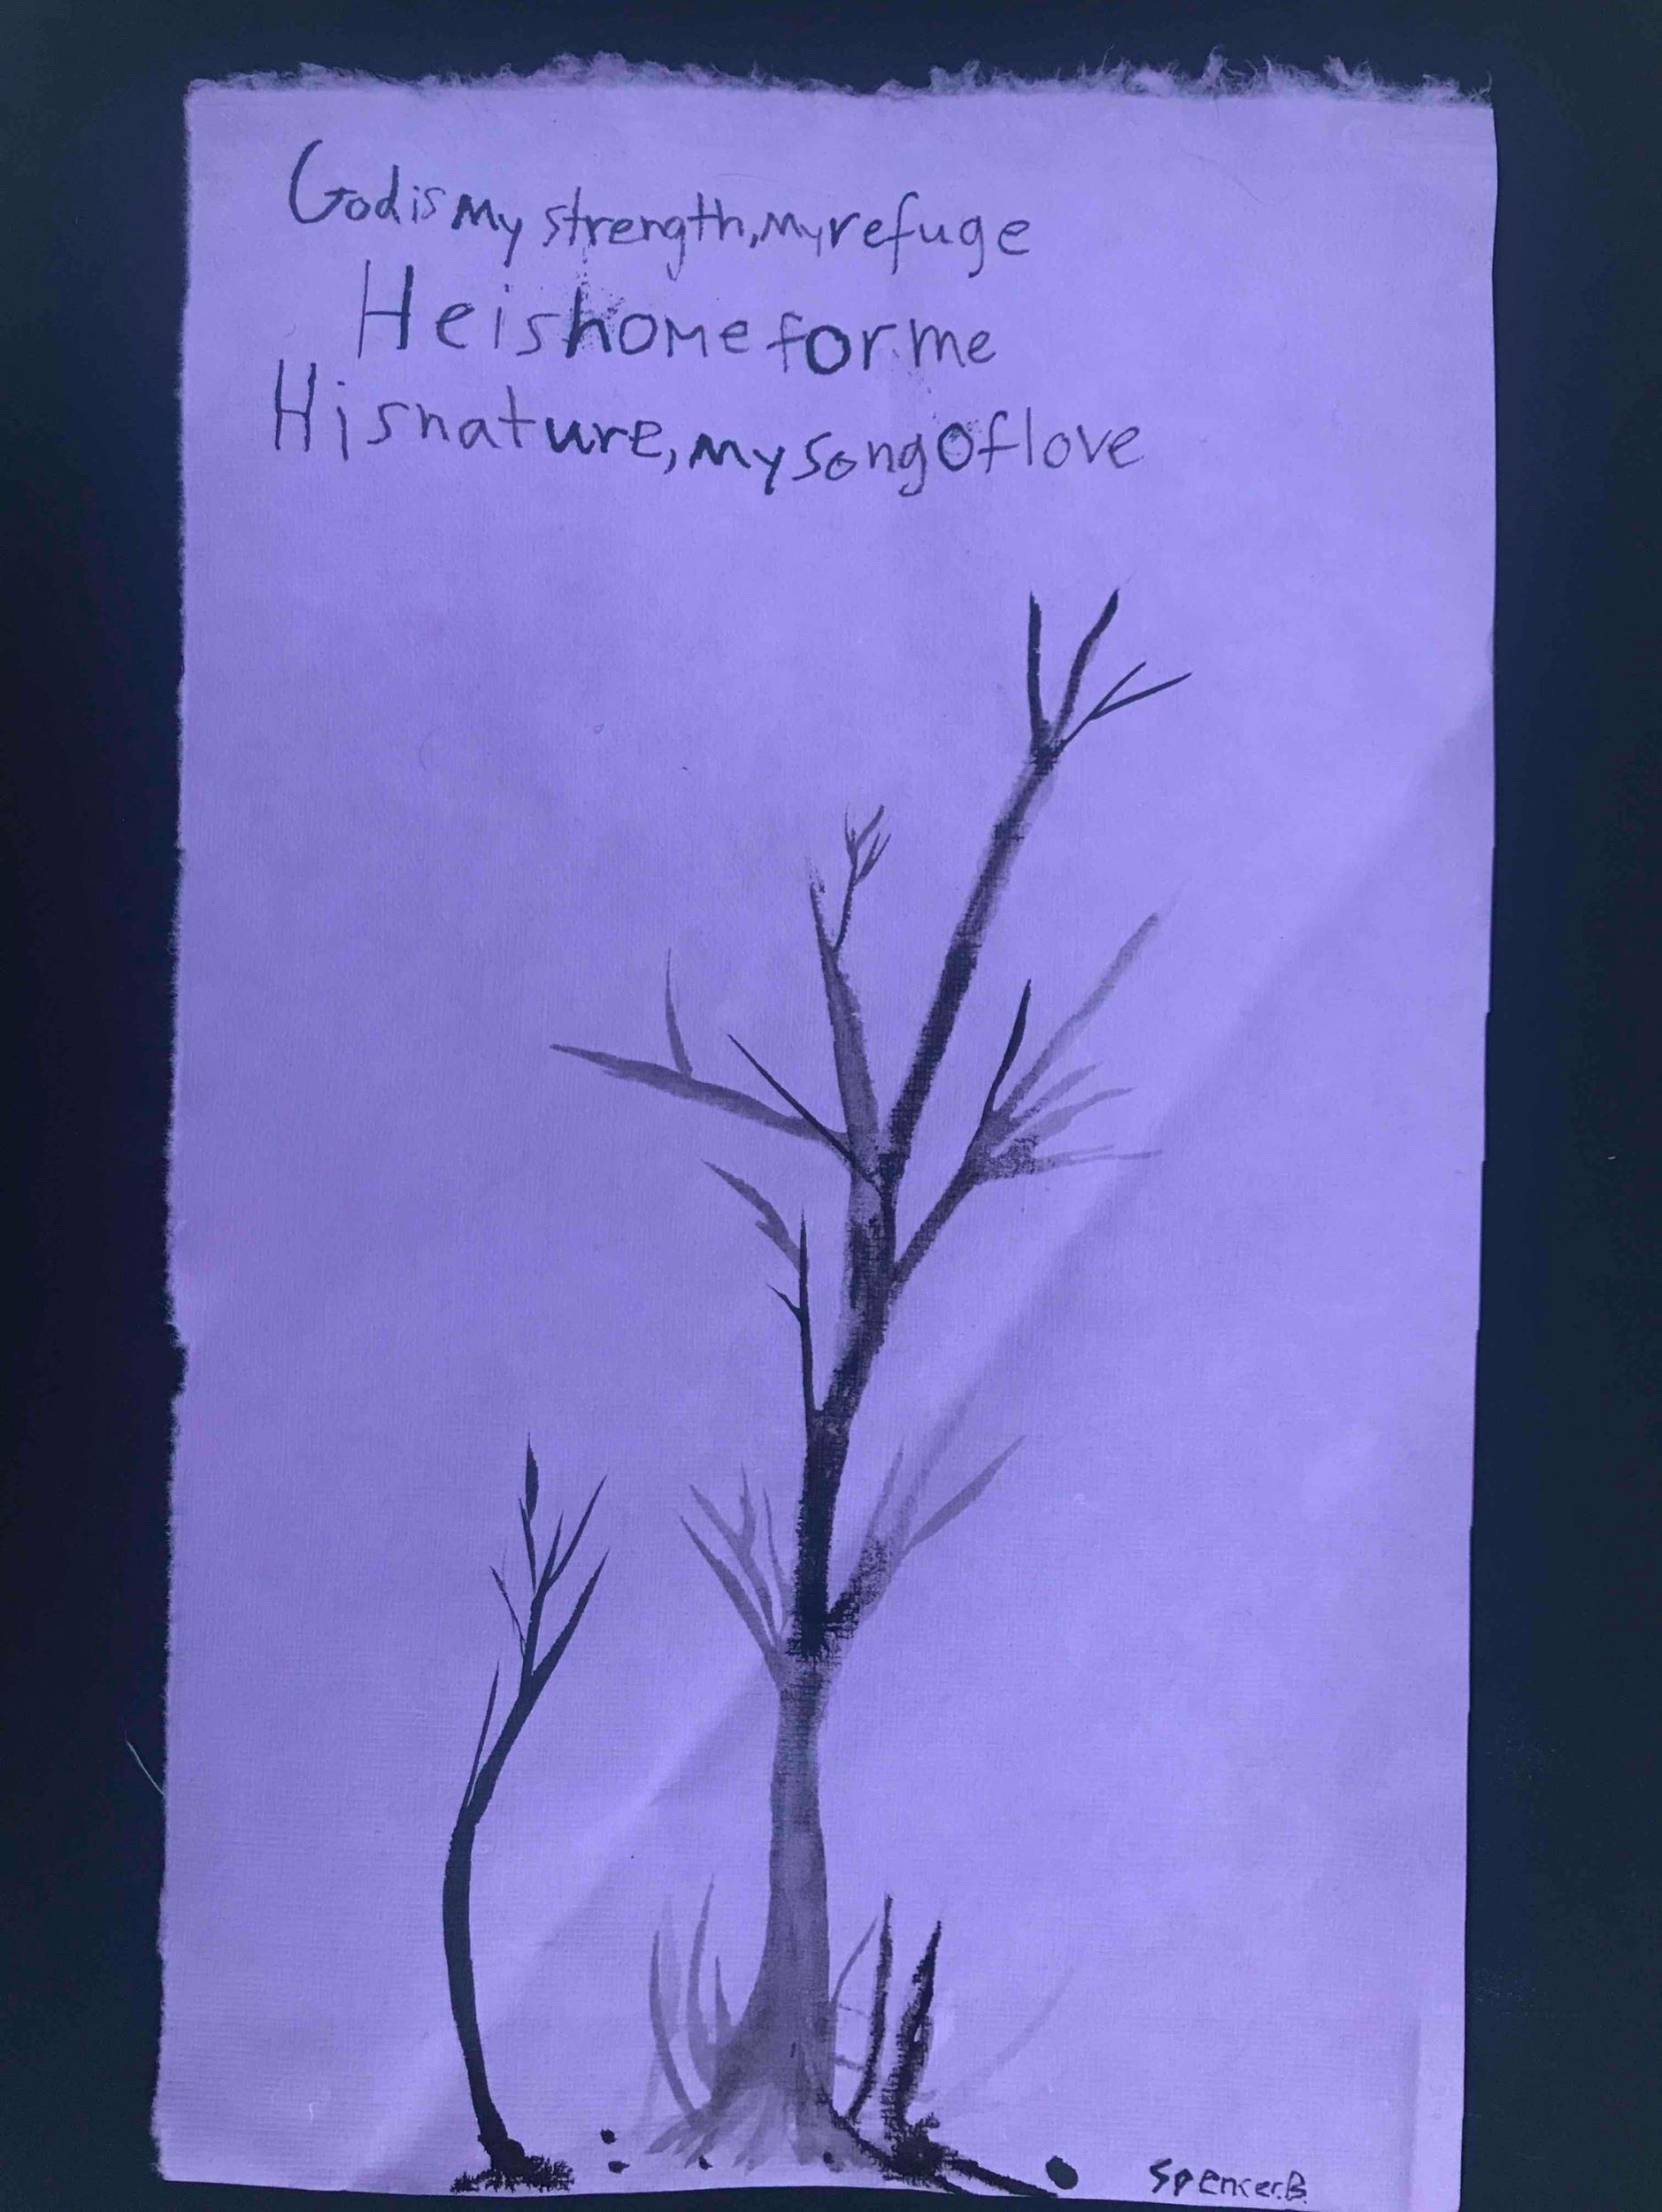 God is my strength, my refuge
He is home for me
His nature, my song of love
Spencer.B.